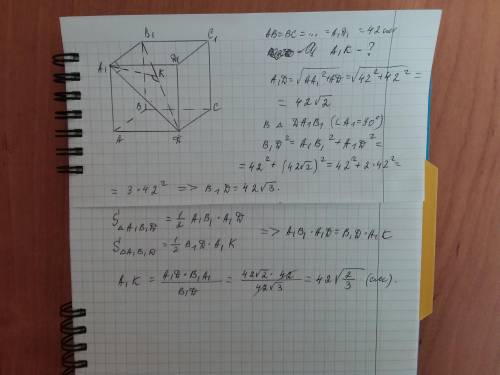 B₁ C₁
A₁ D₁
K
B C
A D
AB=BC=...=A₁D₁=42см
A₁K-?
A₁D=√AA₁²+AD²=√42²+42²=
=42√2
В △ DA₁B₁ (∠A₁=90°)
B₁D²=A₁B₁²+A₁D²=
=42²+(42√2)²=42²+2·42²=
=3·42² => B₁D=42√3.
S△A₁B₁D=½ A₁B₁·A₁D
S△A₁B₁D=½ B₁D·A₁K => A₁B₁·A₁D=B₁D·A₁K
A₁K = A₁D·B₁A₁/B₁D = 42√2·42/42√3 = 42√2/3 (см).